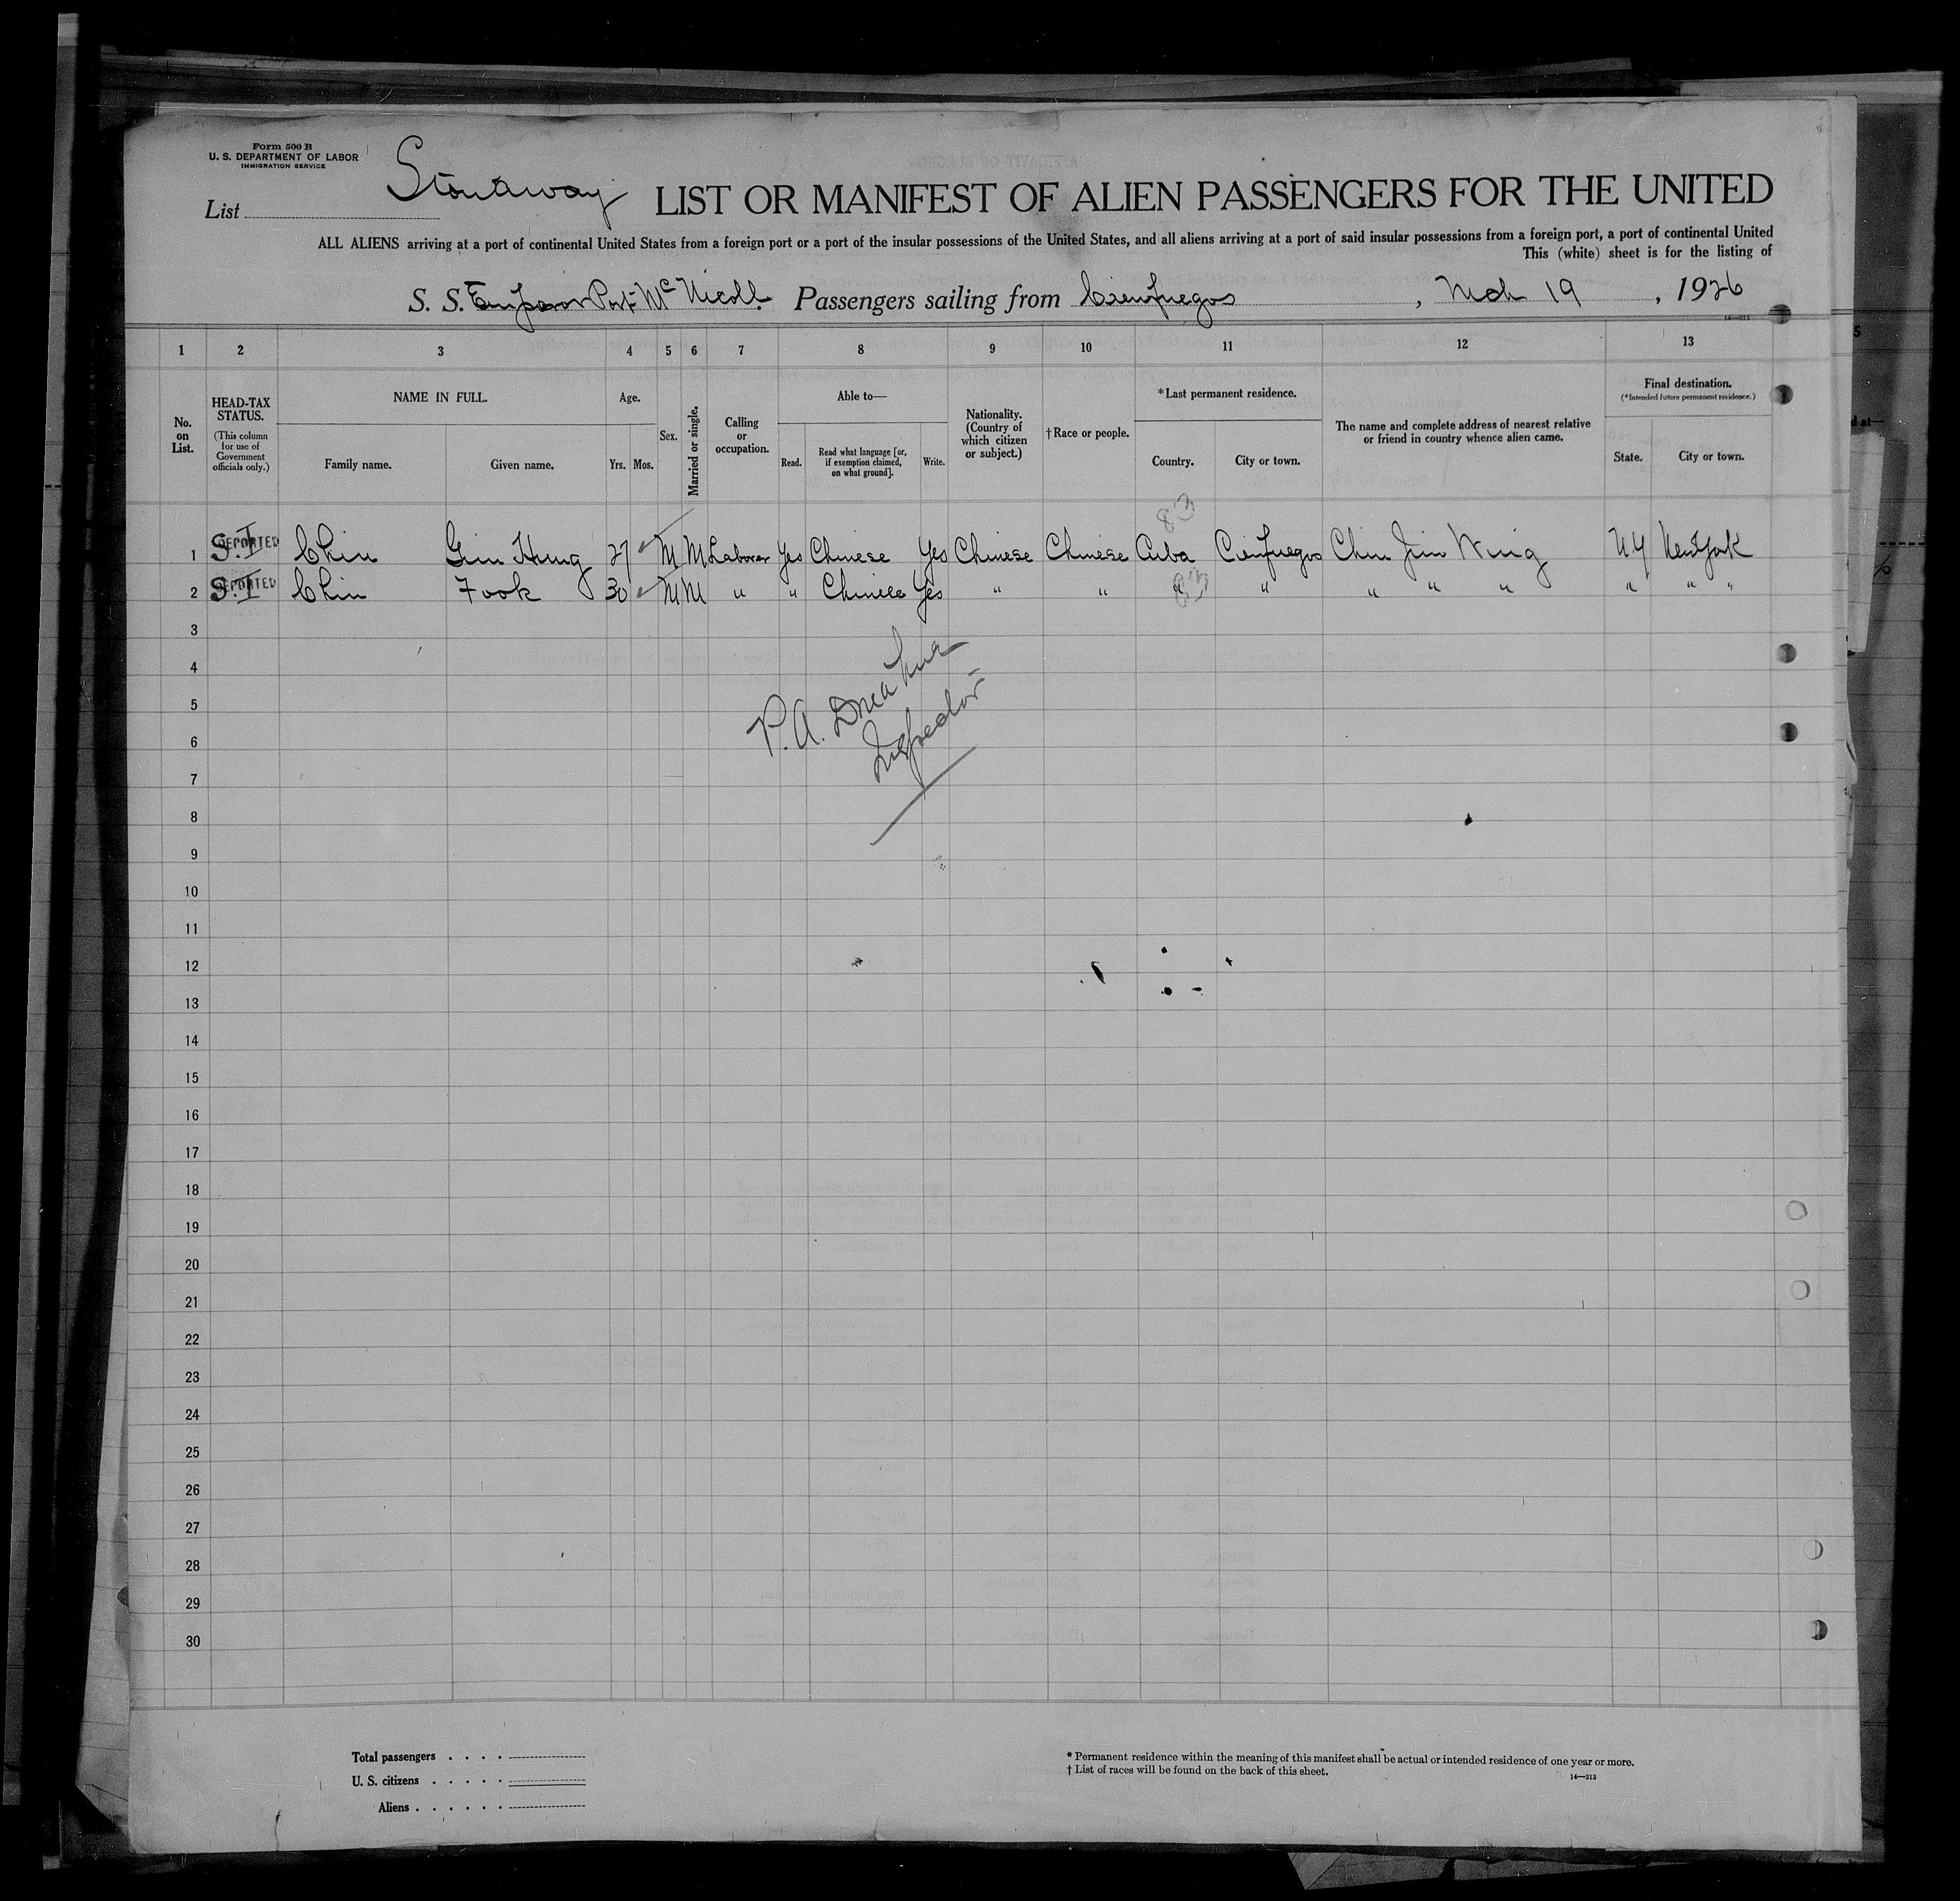 Form 500 B
U. S. DEPARTMENT OF LABOR
IMMIGRATION SERVICE
List Stowaway LIST OR MANIFEST OF ALIEN PASSENGERS FOR THE UNITED
ALL ALIENS arriving at a port of continental United States from a foreign port or a port of the insular possessions of the United States, and all aliens arriving at a port of said insular possessions from a foreign port, a port of continental United
This (white) sheet is for the listing of
S. S. Emperor Port Mc Nicoll Passengers sailing from Cienfuegos, Mch 19, 1926
14—213
1 2 3 4 5 6 7 8 9 10 11 12 13
No. on List.
HEAD-TAX STATUS.
(This column for use of Government officials only.)
NAME IN FULL.
Family name. Given name.
Age.
Yrs. Mos.
Sex.
Married or single.
Calling or occupation.
Able to—
Read. Read what language [or, if exemption claimed, on what ground]. Write.
Nationality. (Country of which citizen or subject.)
†Race or people.
*Last permanent residence.
Country. City or town.
The name and complete address of nearest relative or friend in country whence alien came.
Final destination.
(*Intended future permanent residence.)
State. City or town.
83
1 S.I DEPORTED Chin Gim Hung 27 M M Laborer Yes Chinese Yes Chinese Chinese Cuba Cienfuegos Chin Jim Wing N Y New York
2 S.I DEPORTED Chin Fook 30 M M " " Chinese Yes " " " " " " " " " "
3
4
5
6
7
8
9
10
11
12
13
14
15
16
17
18
19
20
21
22
23
24
25
26
27
28
29
30
P. A.
Inspector
Total passengers . . . .
U. S. citizens . . . . .
Aliens . . . . . .
* Permanent residence within the meaning of this manifest shall be actual or intended residence of one year or more.
† List of races will be found on the back of this sheet.
14—213